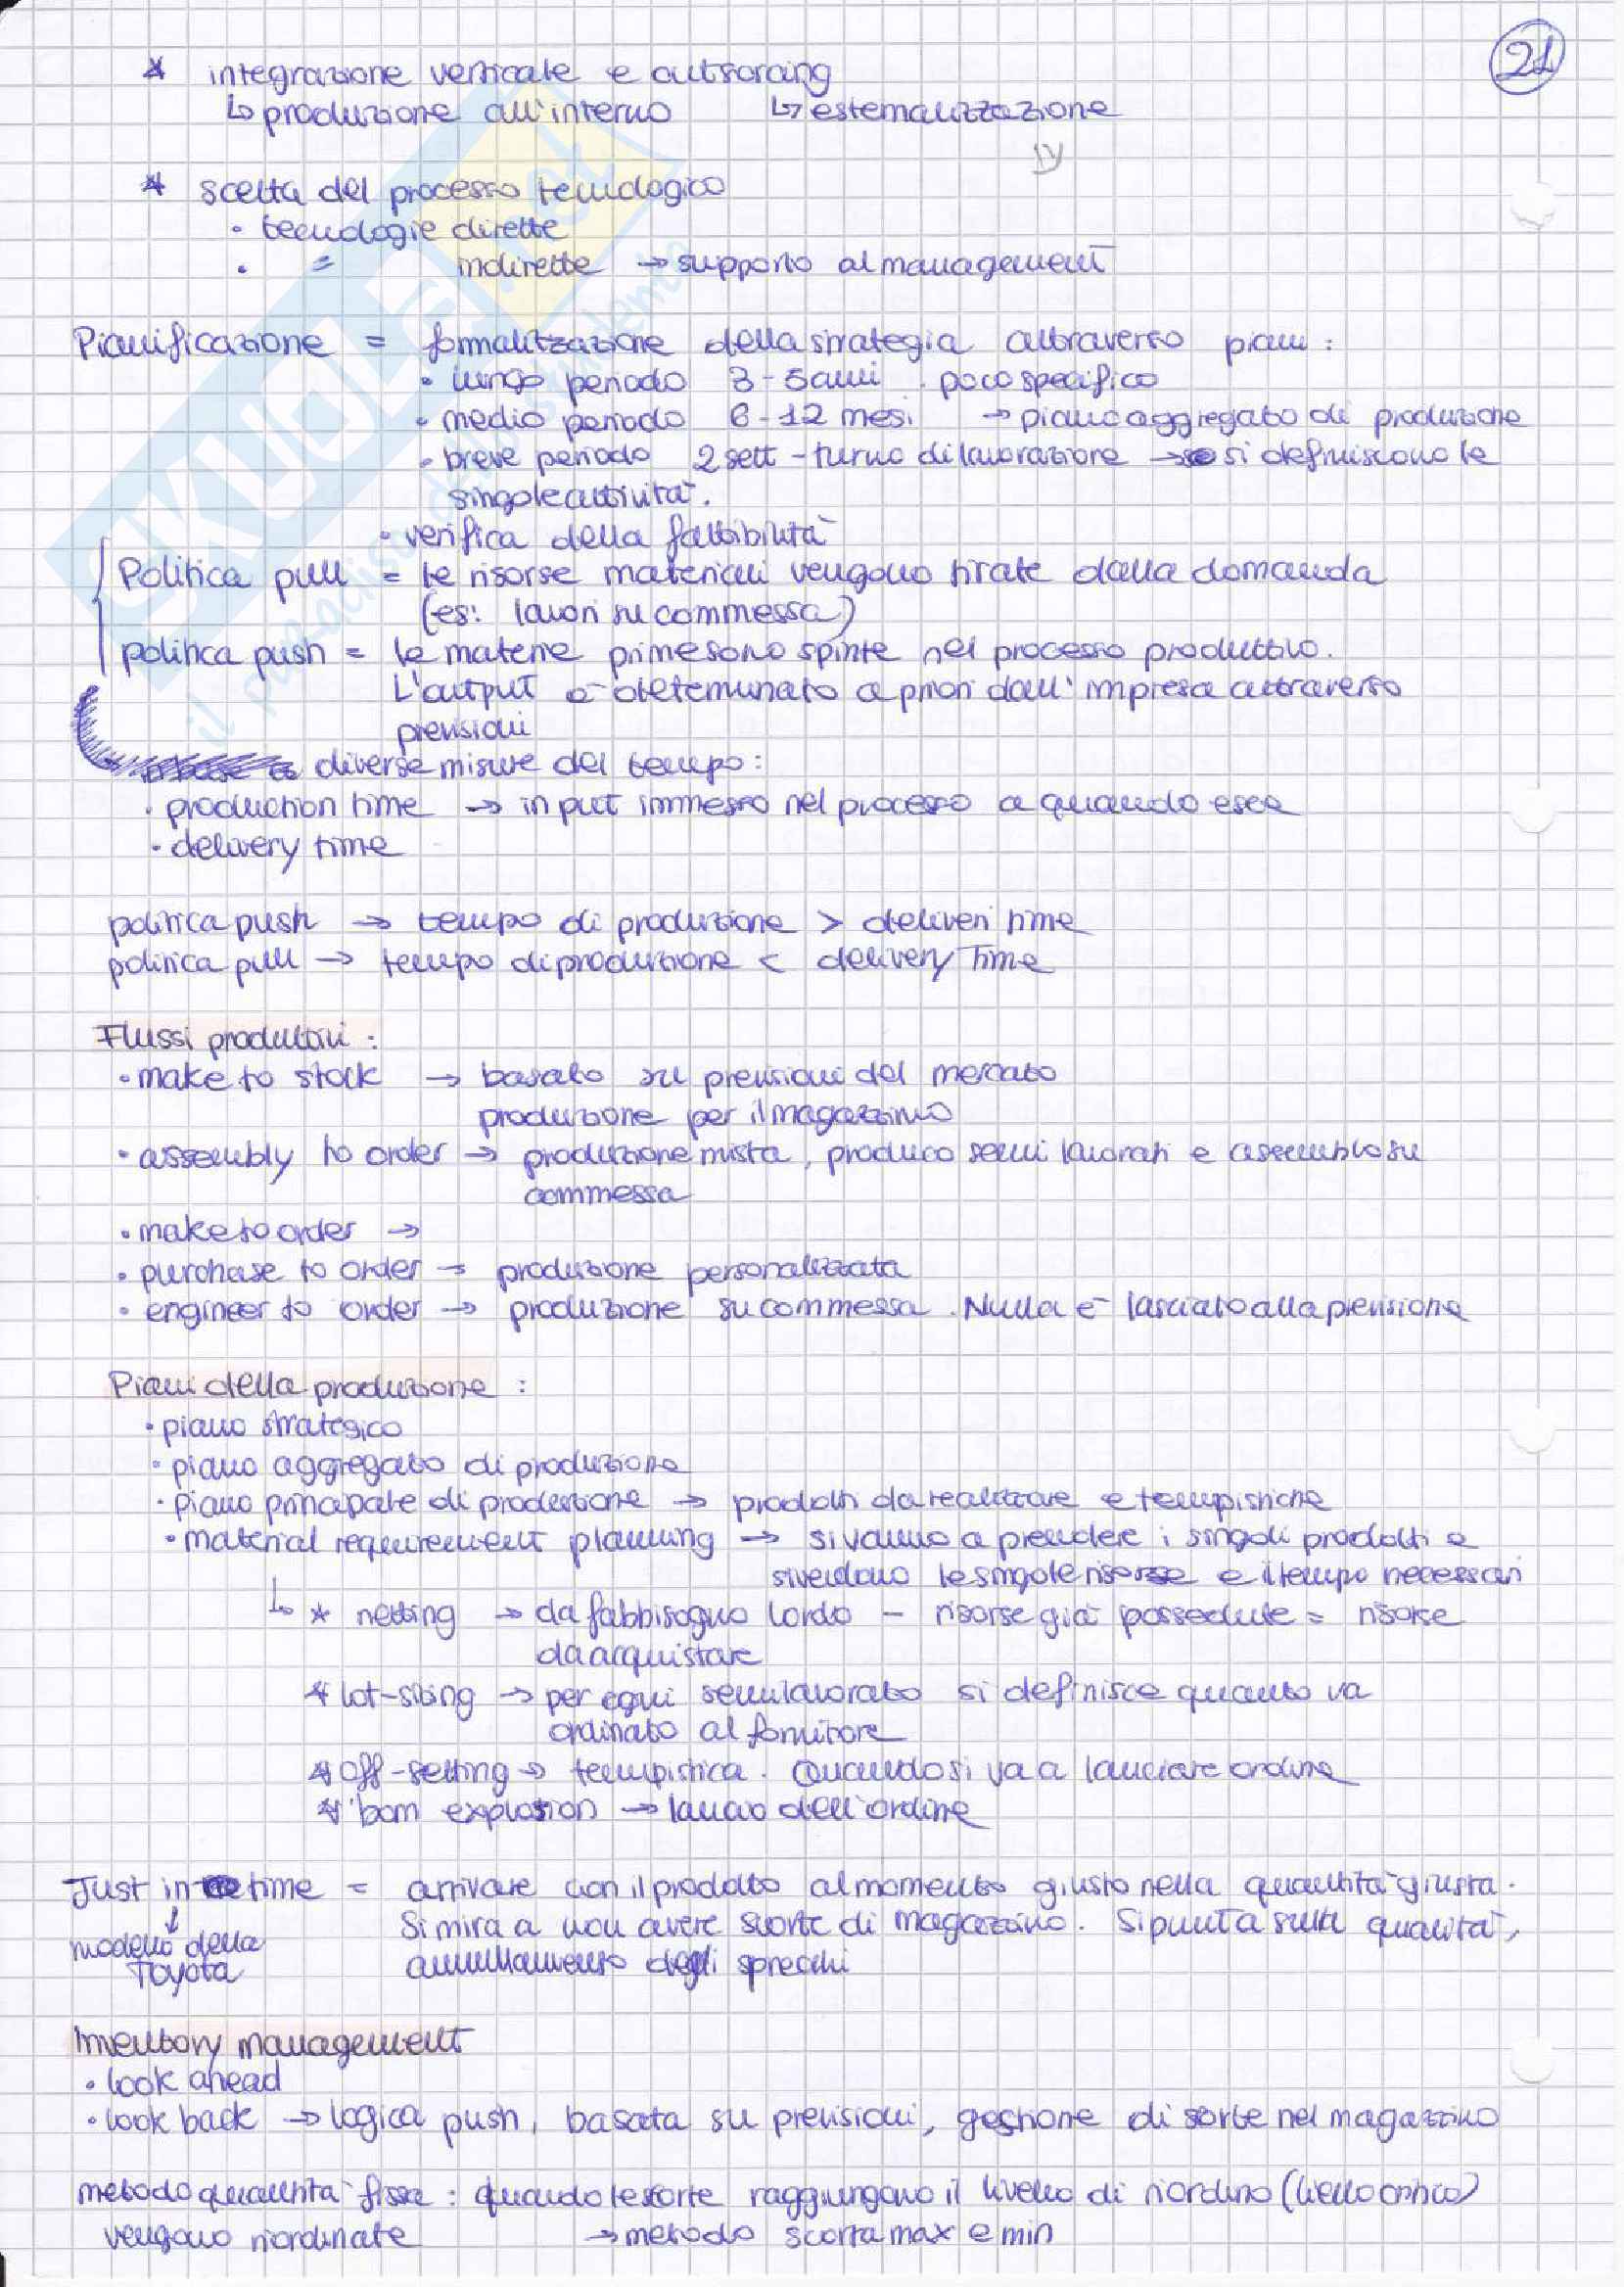 21
* integrazione verticale e outsorcing
↳ produzione all'interno ↳ esternalizzazione
* scelta del processo tecnologico
• tecnologie dirette
• = indirette → supporto al management
Pianificazione = formalizzazione della strategia attraverso piani:
• lungo periodo 3-5 anni . poco specifico
• medio periodo 6-12 mesi → piano aggregato di produzione
• breve periodo 2 sett - turno di lavorazione → si definiscono le
singole attività.
• verifica della fattibilità
Politica pull = le risorse materiali vengono tirate dalla domanda
(es: lavori su commessa)
politica push = le materie prime sono spinte nel processo produttivo.
L'output è determinato a priori dall'impresa attraverso
previsioni
diverse misure del tempo:
• production time → input immesso nel processo a quando esce
• delivery time
politica push → tempo di produzione > deliveri time
politica pull → tempo di produzione < delivery Time
Flussi produttivi:
• make to stock → basato su previsioni del mercato
produzione per il magazzino
• assembly to order → produzione mista, produco semi lavorati e assemblo su
commessa
• make to order →
• purchase to order → produzione personalizzata
• engineer to order → produzione su commessa. Nulla è lasciato alla previsione
Piani della produzione:
• piano strategico
• piano aggregato di produzione
• piano principale di produzione → prodotti da realizzare e tempistiche
• material requirement planning → si vanno a prendere i singoli prodotti e
si vedono le singole risorse e il tempo necessari
↳ * netting → da fabbisogno lordo - risorse già possedute = risorse
da acquistare
* lot-sizing → per ogni semilavorato si definisce quanto va
ordinato al fornitore
* off-setting → tempistica. Quando si va a lanciare ordine
* bom explosion → lancio dell'ordine
Just in time = arrivare con il prodotto al momento giusto nella quantità giusta.
↓ Si mira a non avere scorte di magazzino. Si punta sulla qualità,
modello della
Toyota annullamento degli sprechi
Inventory management
• look ahead
• look back → logica push, basata su previsioni, gestione di sorte nel magazzino
metodo quantità fissa: quando le scorte raggiungono il livello di riordino (livello critico)
vengono riordinate → metodo scorta max e min
SKUOLA.net
il paradiso dello studente